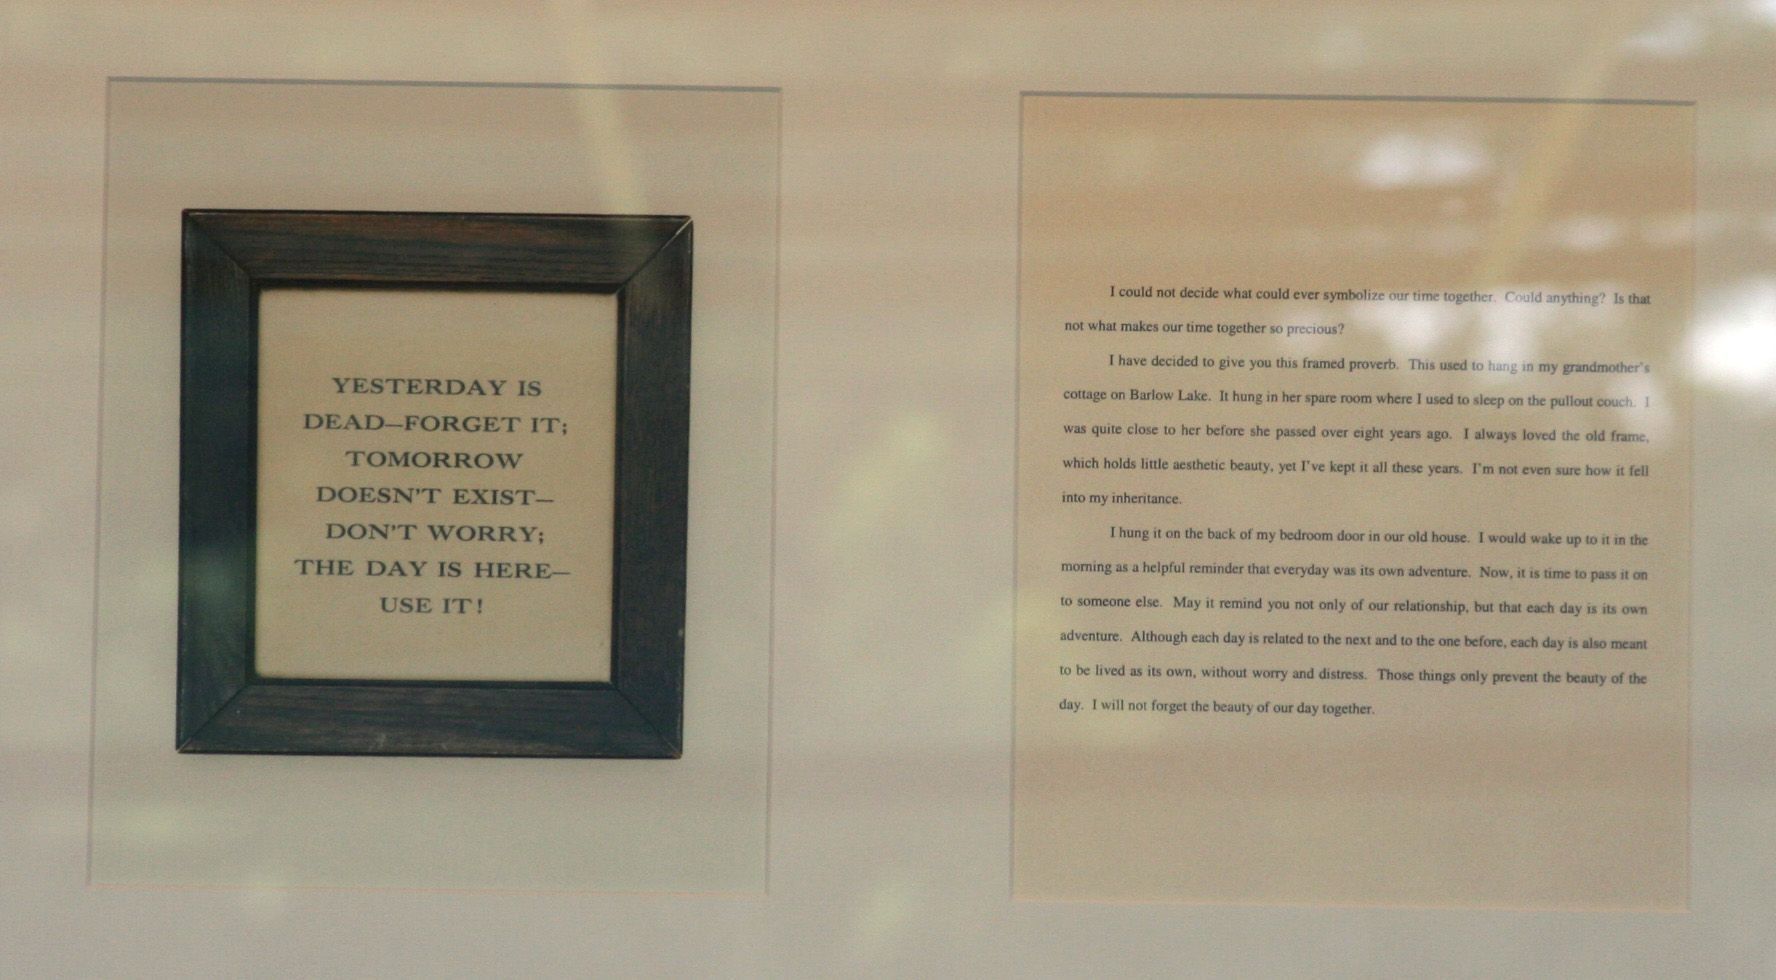 YESTERDAY IS
DEAD—FORGET IT;
TOMORROW
DOESN'T EXIST—
DON'T WORRY;
THE DAY IS HERE—
USE IT!
I could not decide what could ever symbolize our time together. Could anything? Is that
not what makes our time together so precious?
I have decided to give you this framed proverb. This used to hang in my grandmother's
cottage on Barlow Lake. It hung in her spare room where I used to sleep on the pullout couch. I
was quite close to her before she passed over eight years ago. I always loved the old frame,
which holds little aesthetic beauty, yet I've kept it all these years. I'm not even sure how it fell
into my inheritance.
I hung it on the back of my bedroom door in our old house. I would wake up to it in the
morning as a helpful reminder that everyday was its own adventure. Now, it is time to pass it on
to someone else. May it remind you not only of our relationship, but that each day is its own
adventure. Although each day is related to the next and to the one before, each day is also meant
to be lived as its own, without worry and distress. Those things only prevent the beauty of the
day. I will not forget the beauty of our day together.